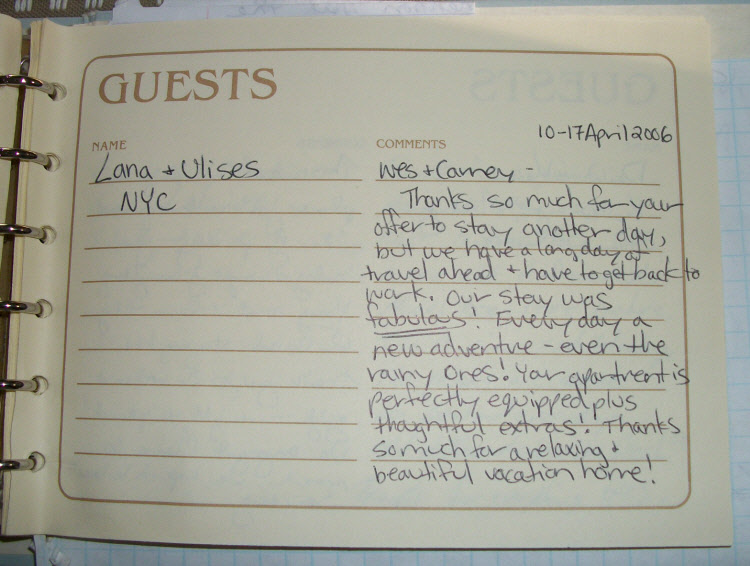 GUESTS
10-17 April 2006
NAME
COMMENTS
Lana + Ulises
NYC
Wes + Carney -
Thanks so much for your
offer to stay another day,
but we have a long day of
travel ahead + have to get back to
work. Our stay was
fabulous! Every day a
new adventure - even the
rainy ones! Your apartment is
perfectly equipped plus
thoughtful extras! Thanks
so much for a relaxing +
beautiful vacation home!